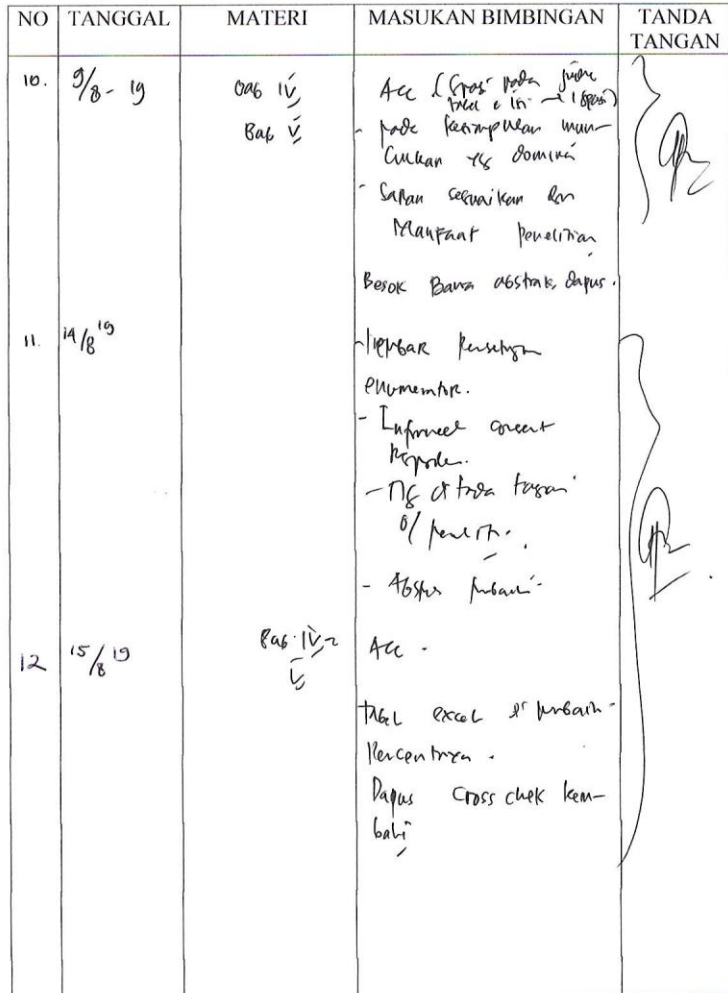 NO TANGGAL MATERI MASUKAN BIMBINGAN TANDA TANGAN
10. 9/8-19 Bab IV Acc (Spasi pada judul
tabel & isi → 1 spasi)
Bab V - pada kesimpulan mun-
culkan yg dominan
- Saran sesuaikan dn
Manfaat penelitian
Besok Bawa abstrak, dapus.
11. 14/8 19 - lembar
enumerator.
- Informed consent
- 
tanda tangan
o/ peneliti.
- Abstrak perbaiki
12 15/8 19 Bab IV Acc.
V
Tabel excel di perbaiki
Dapus cross chek kem-
bali